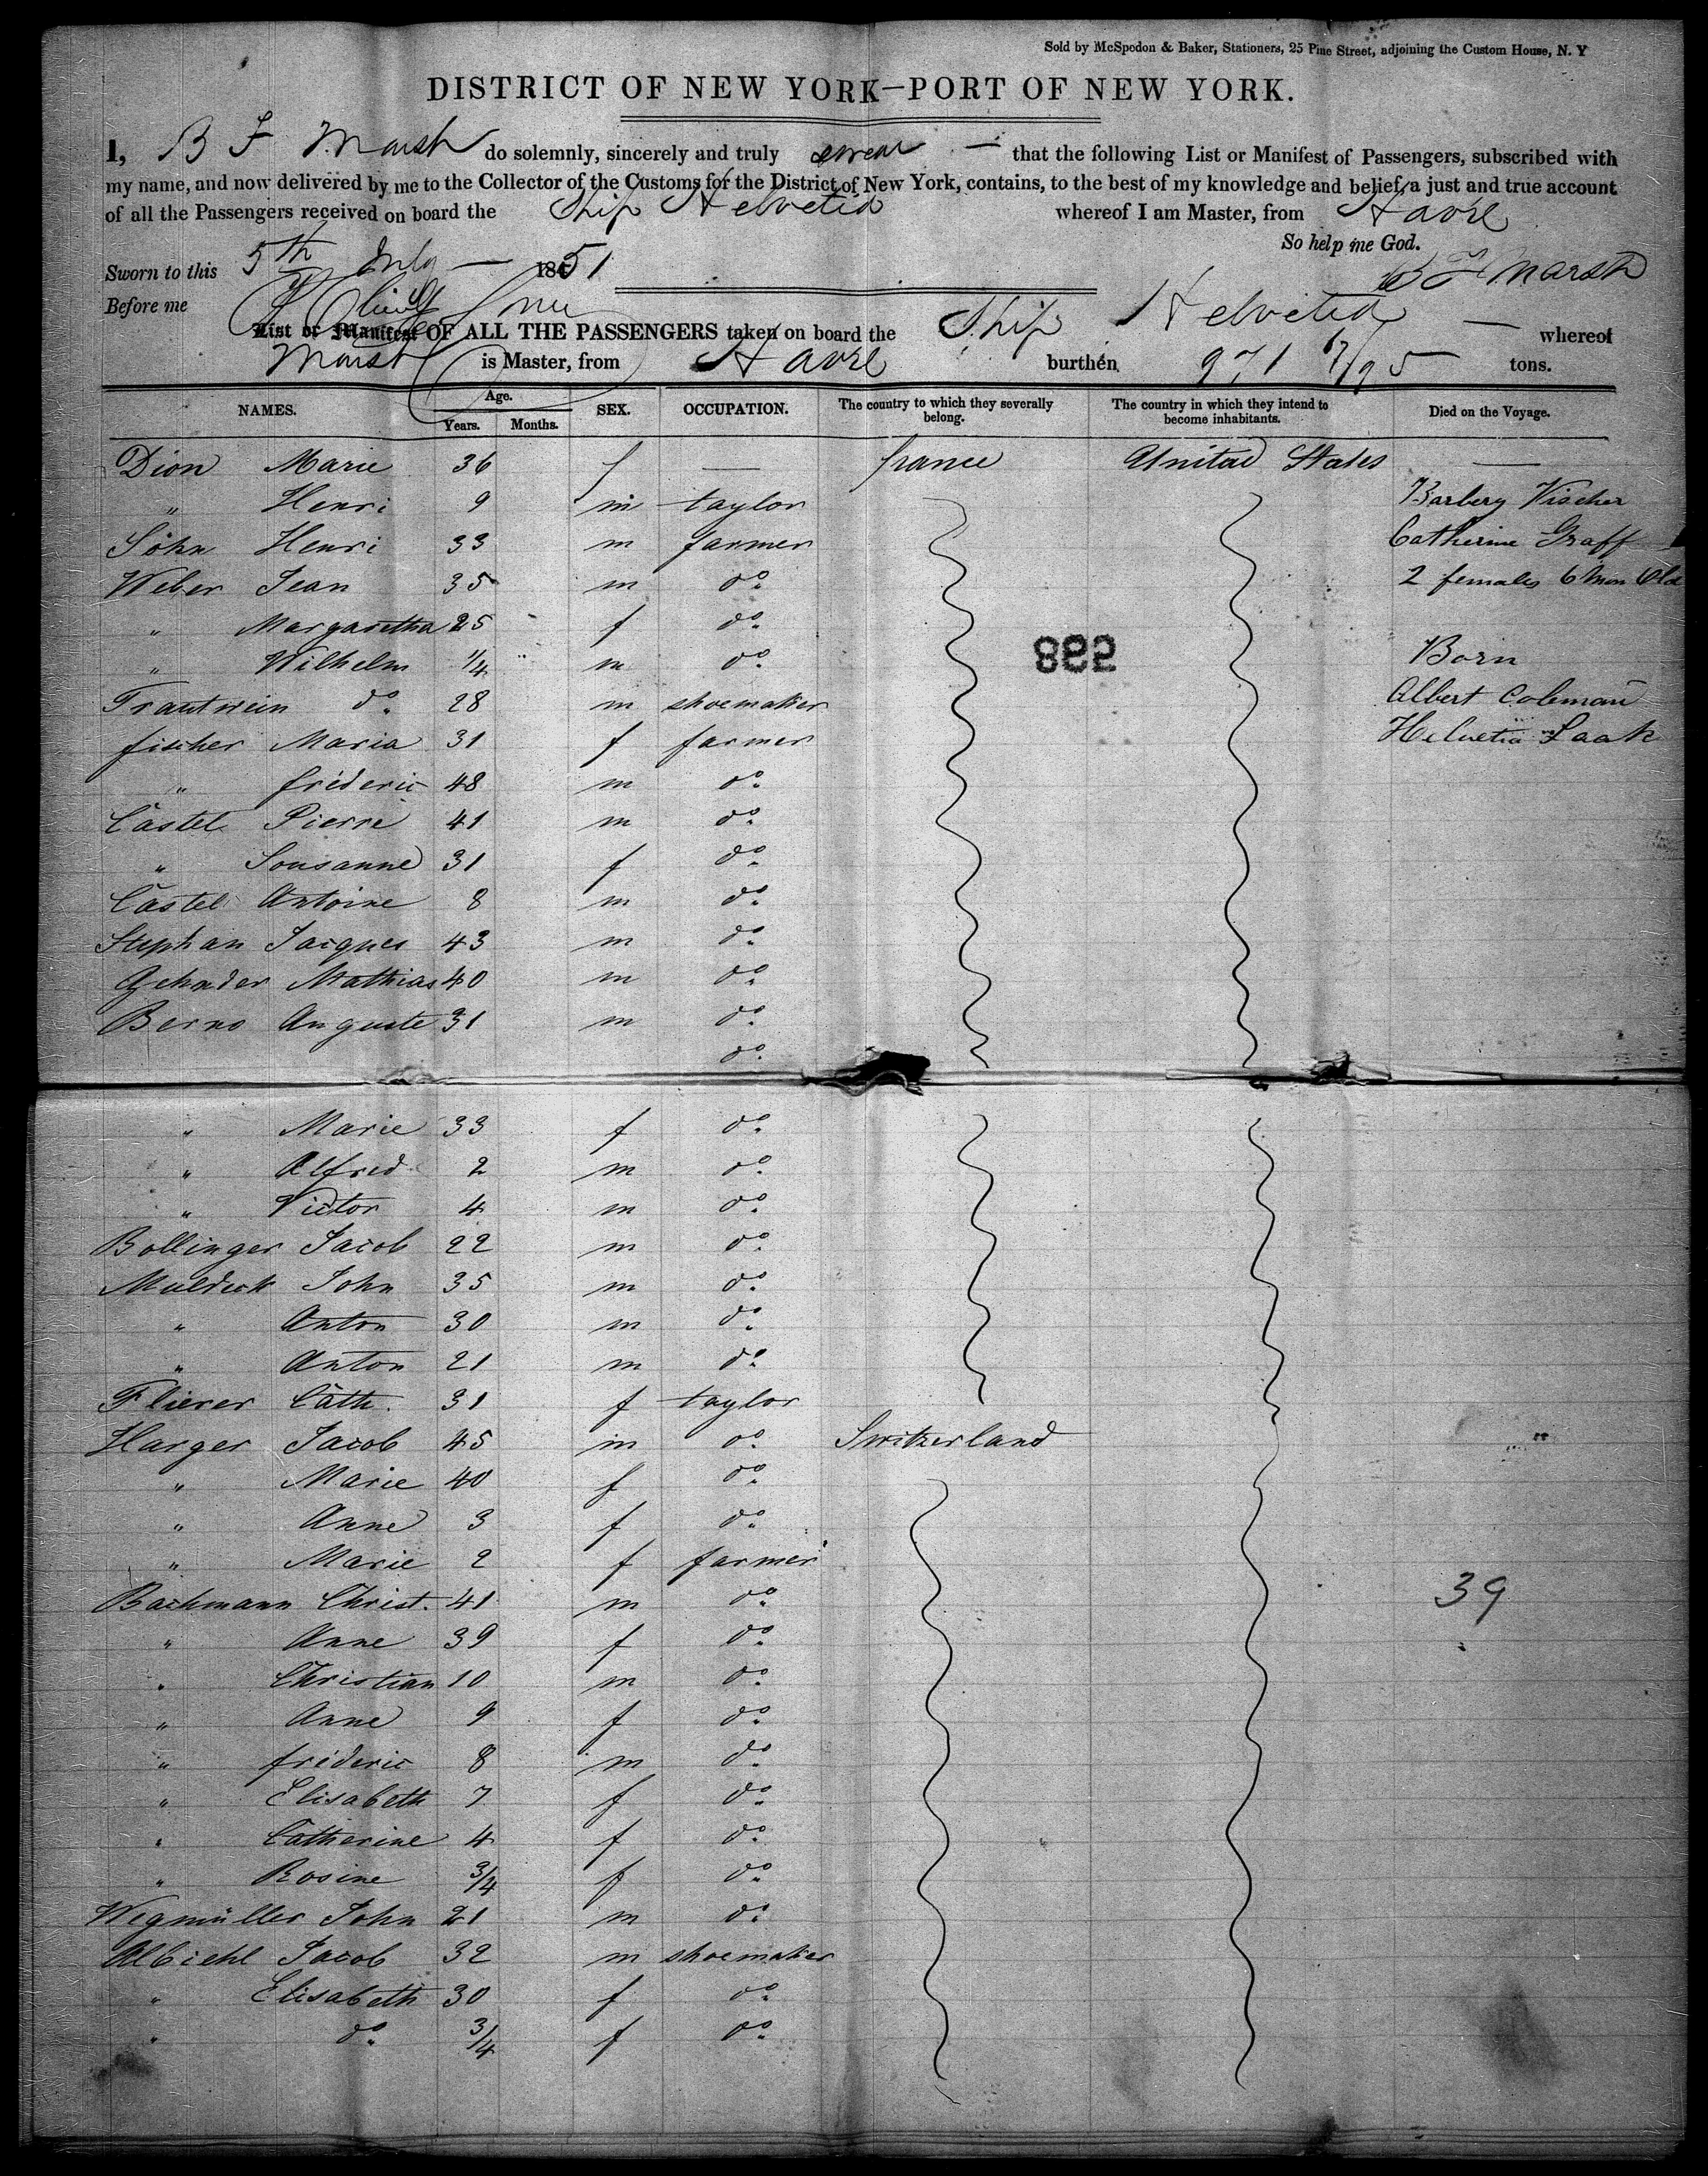 Sold by McSpedon & Baker, Stationers, 25 Pine Street, adjoining the Custom House, N. Y
DISTRICT OF NEW YORK—PORT OF NEW YORK.
I, B F Marsh do solemnly, sincerely and truly swear — that the following List or Manifest of Passengers, subscribed with
my name, and now delivered by me to the Collector of the Customs for the District of New York, contains, to the best of my knowledge and belief, a just and true account
of all the Passengers received on board the Ship Helvetia whereof I am Master, from Havre
So help me God.
Sworn to this 5th July — 1851 B F Marsh
Before me
List or Manifest OF ALL THE PASSENGERS taken on board the Ship Helvetia — whereof
Marsh is Master, from Havre burthen 971 /95 tons.
NAMES. Age. Years. Months. SEX. OCCUPATION. The country to which they severally belong. The country in which they intend to become inhabitants. Died on the Voyage.
Dion Marie 36 f — france United States —
" Henri 9 m taylor Barbery Vischer
Söhn Henri 33 m farmer Catherine Graff
Weber Jean 35 m do 2 females 6 Mon Old
" Margaretha 25 f do
" Wilhelm 1/4 m do Born
Trautwein do 28 m shoemaker Albert Coleman
fischer Maria 31 f farmer Helvetia Laak
" fréderic 48 m do
Castel Pierre 41 m do
" Sousanne 31 f do
Castel Antoine 8 m do
Stephan Jacques 43 m do
Gehnder Mathias 40 m do
Berno Auguste 31 m do
do
" Marie 33 f do
" Alfred 2 m do
" Victor 4 m do
Bollinger Jacob 22 m do
Muldick John 35 m do
" Anton 30 m do
" Anton 21 m do
Flierer Cath. 31 f taylor
Harger Jacob 45 m do Switzerland
" Marie 40 f do
" Anne 3 f do
" Marie 2 f farmer
Bachmann Christ. 41 m do 39
" Anne 39 f do
" Christian 10 m do
" Anne 9 f do
" fréderic 8 m do
" Elisabeth 7 f do
" Catherine 4 f do
" Rosine 3/4 f do
Wegmüller John 21 m do
Albiehl Jacob 32 m shoemaker
" Elisabeth 30 f do
" do 3/4 f do